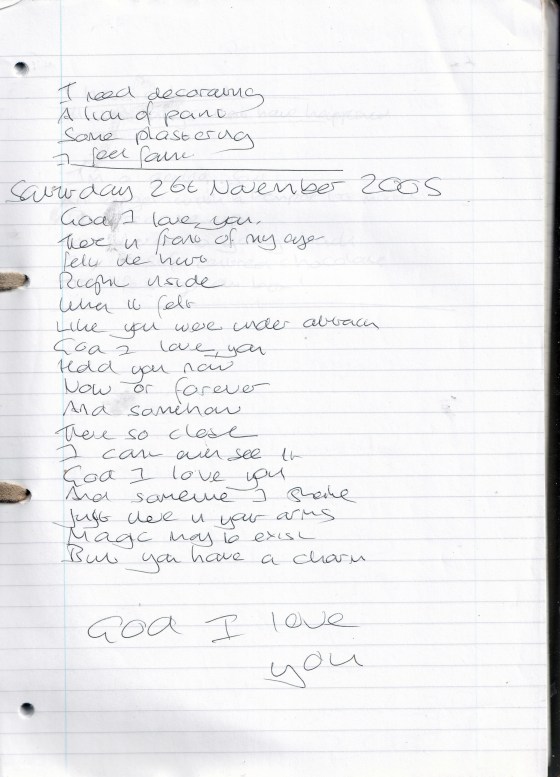 I need decorating
A lick of paint
Some plastering
I feel faint
Saturday 26t November 2005
God I love you.
There in front of my eyes
felt the hurt
Right inside
When it felt
Like you were under attack
God I love you
Hold you now
Now or forever
And somehow
There so close
I can even see it
God I love you
And someone I
Just there in your arms
Magic may exist
But you have a charm
God I love
you